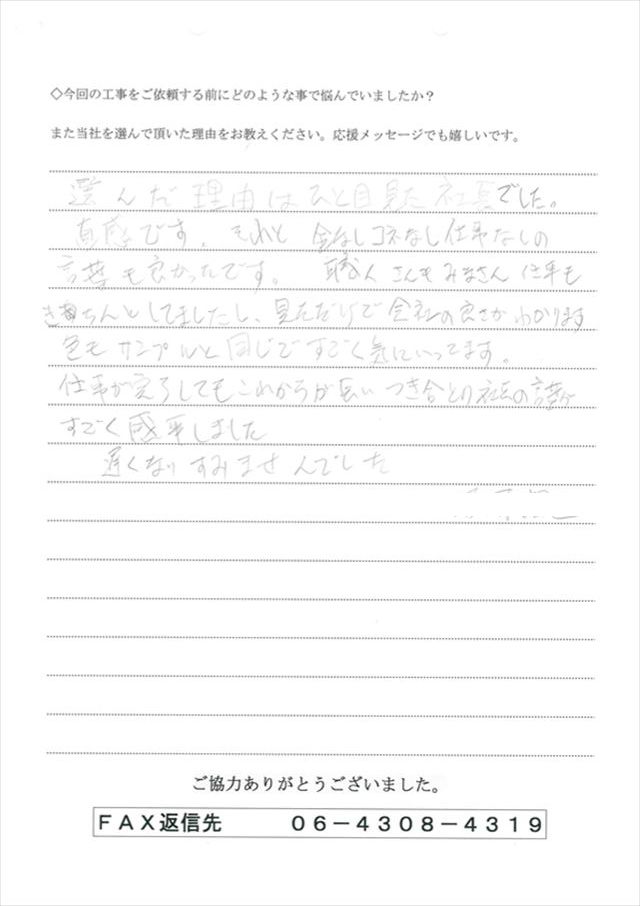 ◇今回の工事をご依頼する前にどのような事で悩んでいましたか?
また当社を選んで頂いた理由をお教えください。応援メッセージでも嬉しいです。
選んだ理由はひと目見た社長でした。
直感です。それと 金なしコネなし仕事なしの
言葉も良かったです。 職人さんもみなさん 仕事も
きちんとしてましたし、見ただけで会社の良さがわかります
色もサンプルと同じですごく気にいってます。
仕事が完了してもこれからが長いつき合とり社長の言葉が
すごく感平しました
遅くなりすみませんでした
ご協力ありがとうございました。
FAX返信先 06-4308-4319